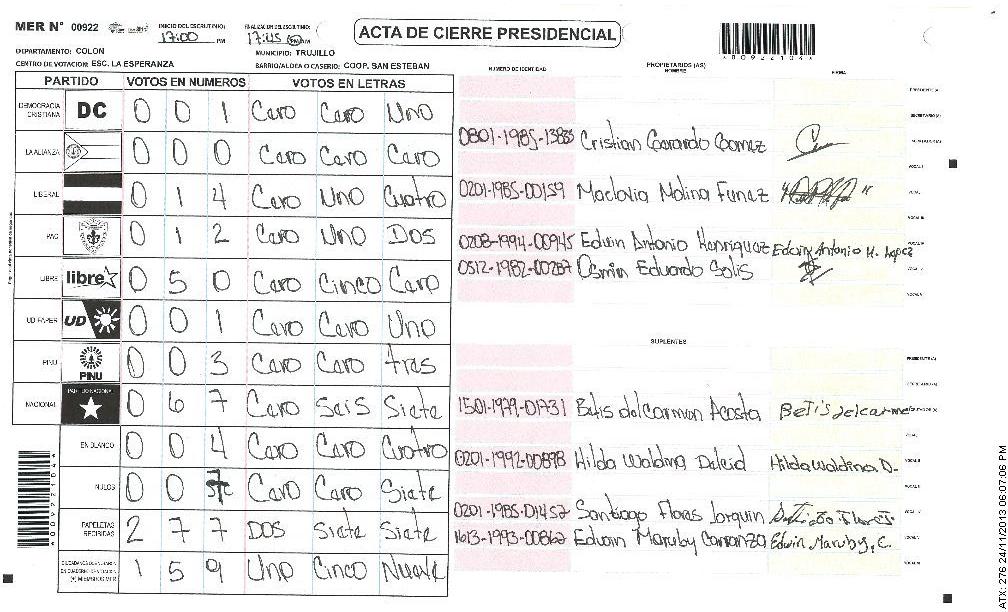 MER N° 00922 INICIO DEL ESCRUTINIO: 17:00 PM FINALIZACION DEL ESCRUTINIO: 17:45 PM
ACTA DE CIERRE PRESIDENCIAL
*00922104*
DEPARTAMENTO: COLON MUNICIPIO: TRUJILLO
CENTRO DE VOTACION: ESC. LA ESPERANZA BARRIO/ALDEA O CASERIO: COOP. SAN ESTEBAN
PARTIDO VOTOS EN NUMEROS VOTOS EN LETRAS
DEMOCRACIA CRISTIANA DC 0 0 1 Cero Cero Uno
LA ALIANZA 0 0 0 Cero Cero Cero
LIBERAL 0 1 4 Cero Uno Cuatro
PAC 0 1 2 Cero Uno Dos
LIBRE libre 0 5 0 Cero Cinco Cero
UD FAPER UD 0 0 1 Cero Cero Uno
PINU PINU 0 0 3 Cero Cero tres
NACIONAL PARTIDO NACIONAL 0 6 7 Cero Seis Siete
EN BLANCO 0 0 4 Cero Cero Cuatro
NULOS 0 0 7 Cero Cero Siete
PAPELETAS RECIBIDAS 2 7 7 DOS Siete Siete
(+) MIEMBROS MER 1 5 9 Uno Cinco Nueve
NUMERO DE IDENTIDAD PROPIETARIOS (AS) NOMBRE FIRMA
PRESIDENTE (A)
SECRETARIO (A)
0801-1985-13835 Cristian Gerardo Gomez
VOCAL I
0201-1985-00159 Maclovia Molina Funez
VOCAL III
0208-1994-00945 Edwin Antonio Henriquez Edwin Antonio H. Lopez
0512-1982-00287 Osmin Eduardo Solis
SUPLENTES
PRESIDENTE (A)
SECRETARIO (A)
1501-1979-01731 Betis del carmen Acosta Betis del carmen
VOCAL I
0201-1992-00898 Hilda Waldina Delcid Hilda Waldina D.
0201-1985-01457 Santiago Flores Jorquin
1613-1993-00862 Edwin Maruby Carranza Edwin Maruby, C.
*00922104*
ATX: 276 24/11/2013 06:07:06 PM